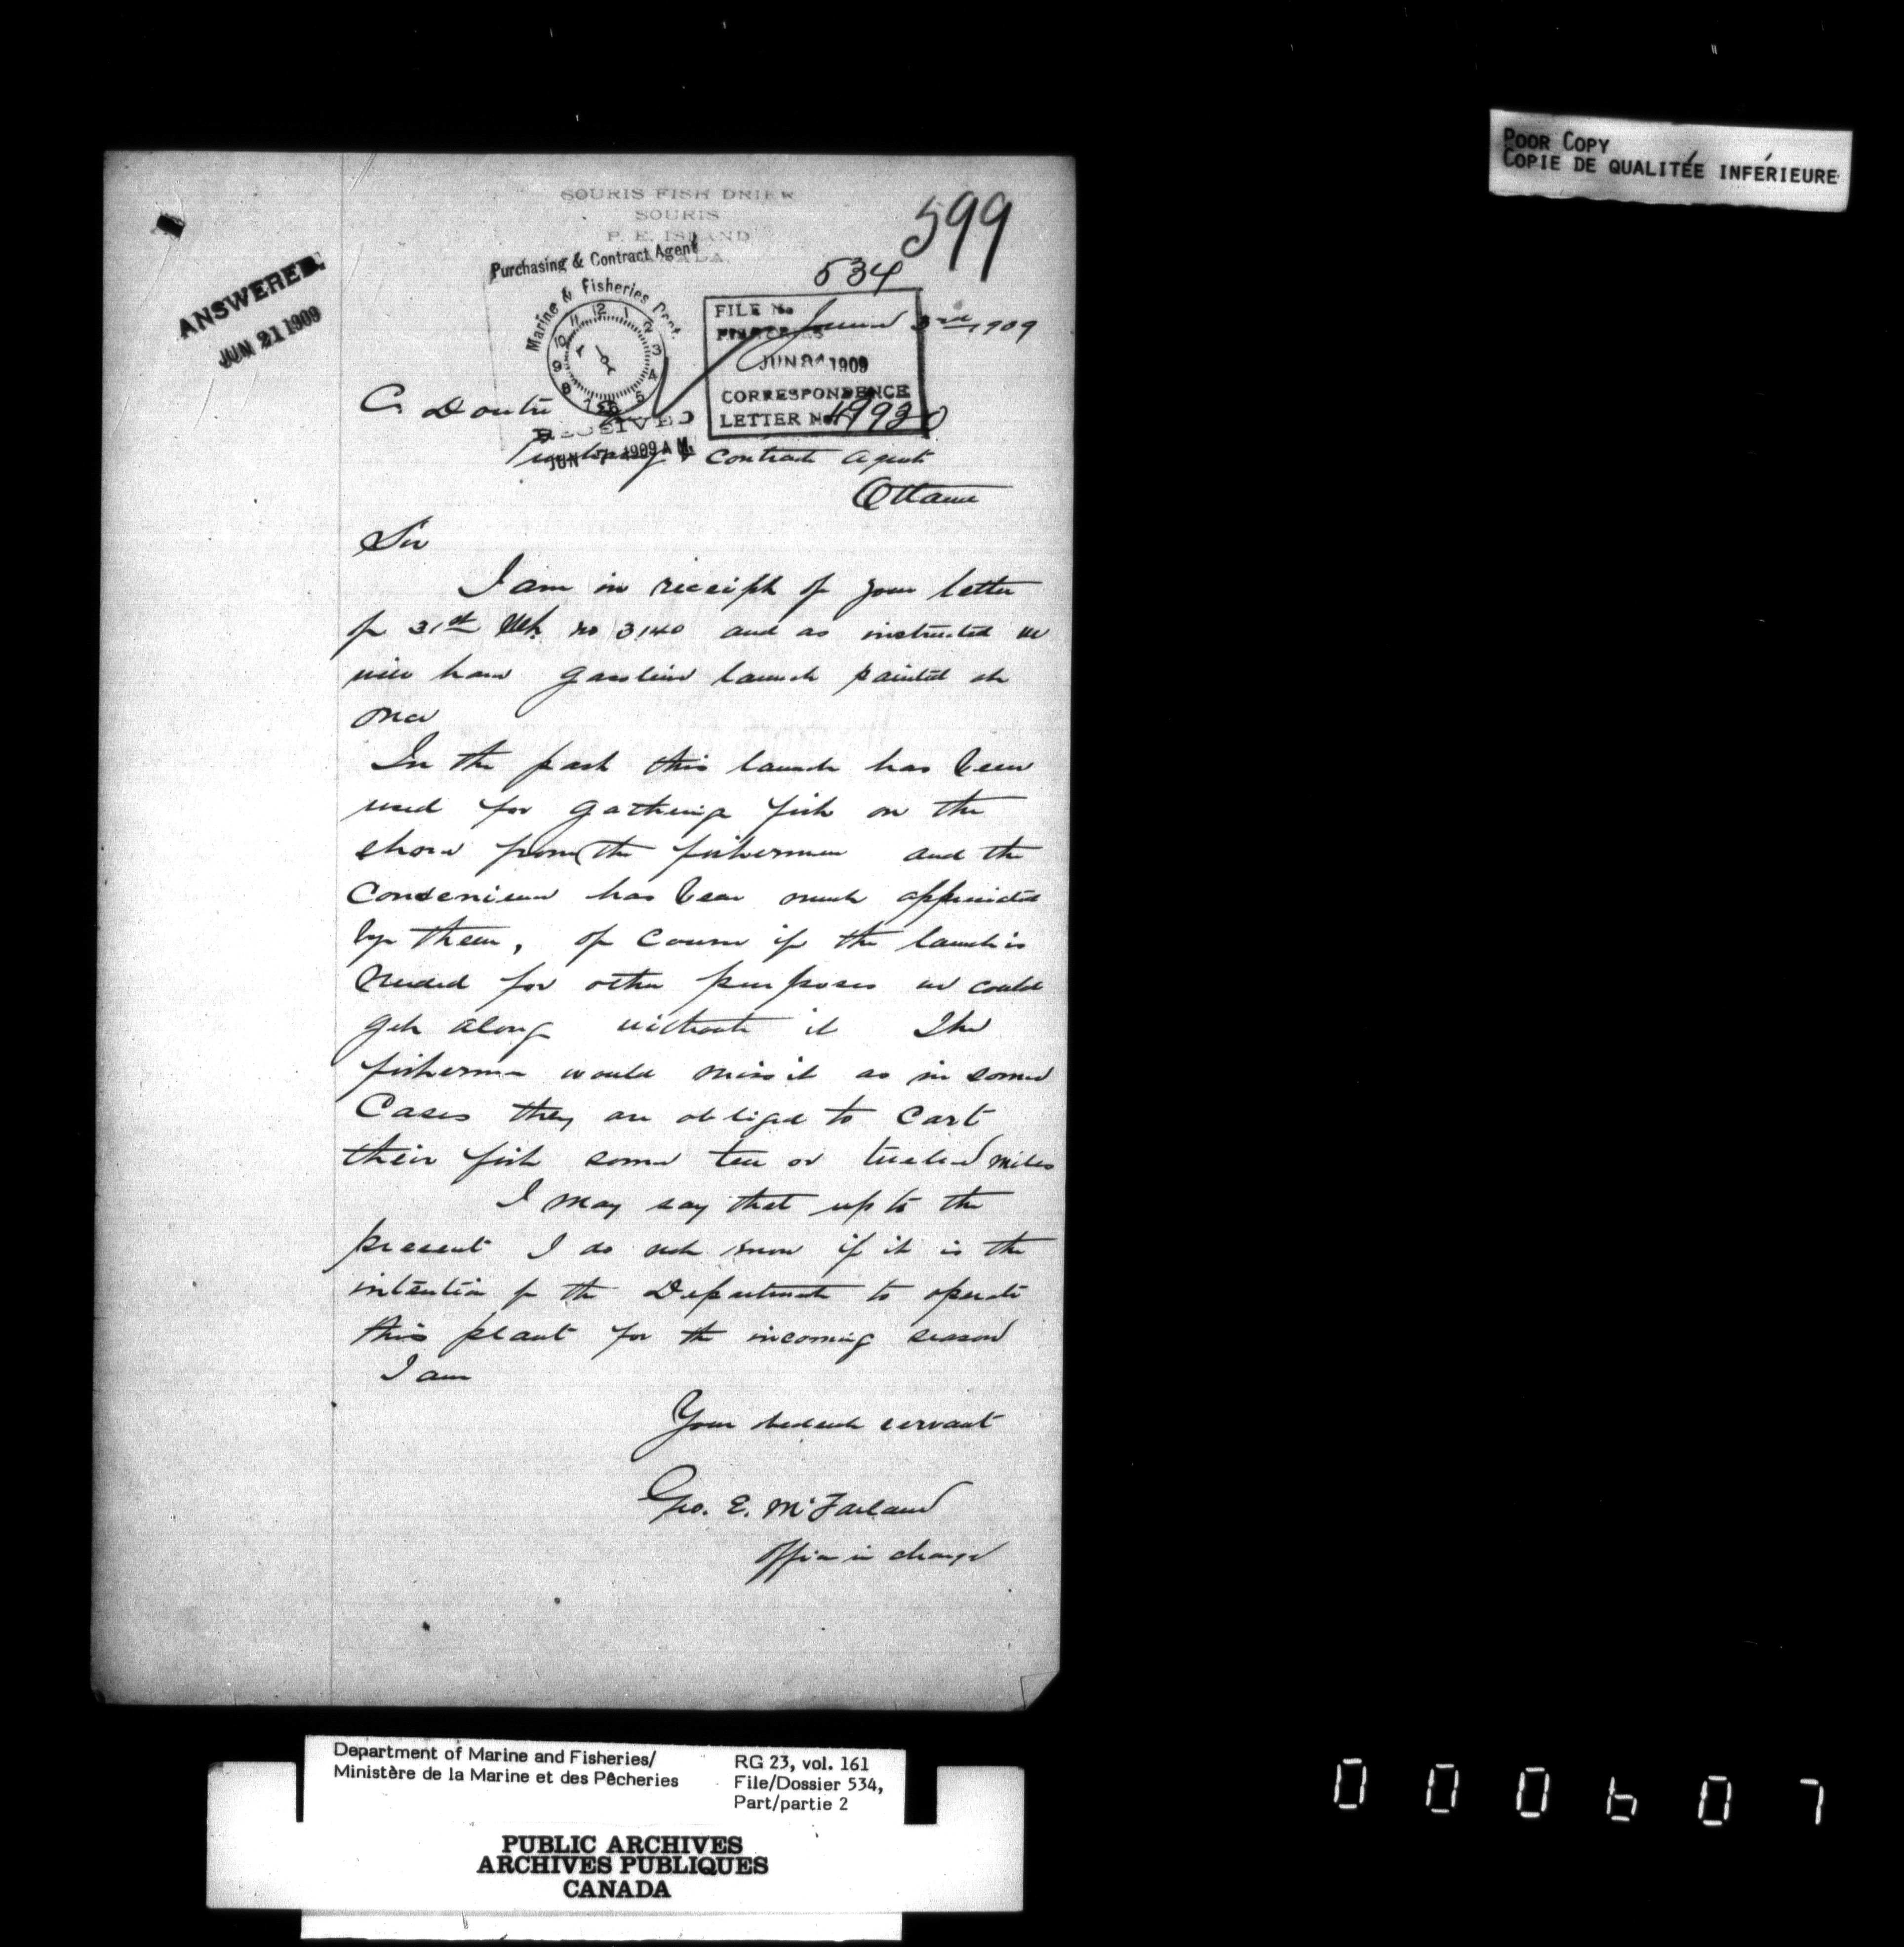 POOR COPY
COPIE DE QUALITÉE INFÉRIEURE
SOURIS FISH DRIER
SOURIS
P. E. ISLAND
599
534
ANSWERED.
JUN 21 1909
Purchasing & Contract Agent
Marine & Fisheries Dept.
RECEIVED
JUN 7 1909 A.M.
FILE No
FISHERIES
JUN 1909
CORRESPONDENCE
LETTER No.
June 3rd 1909
C. Doutre
Purchasing & Contract Agent
Ottawa
Sir
I am in receipt of your letter
of 31st no 3140 and as instructed we
will have gasoline launch painted at
once
In the past this launch has been
used for gathering fish on the
shore from the fishermen and the
Convenience has been much appreciated
by them, of course if the launch is
needed for other purposes we could
get along without it The
fishermen would miss it as in some
Cases they are obliged to cart
their fish some ten or twelve miles
I may say that up to the
present I do not know if it is the
intention of the Department to operate
this plant for the incoming season
I am
Your obedient servant
Geo. E. McFarland
Officer in charge
Department of Marine and Fisheries/
Ministère de la Marine et des Pêcheries
RG 23, vol. 161
File/Dossier 534,
Part/partie 2
PUBLIC ARCHIVES
ARCHIVES PUBLIQUES
CANADA
000607